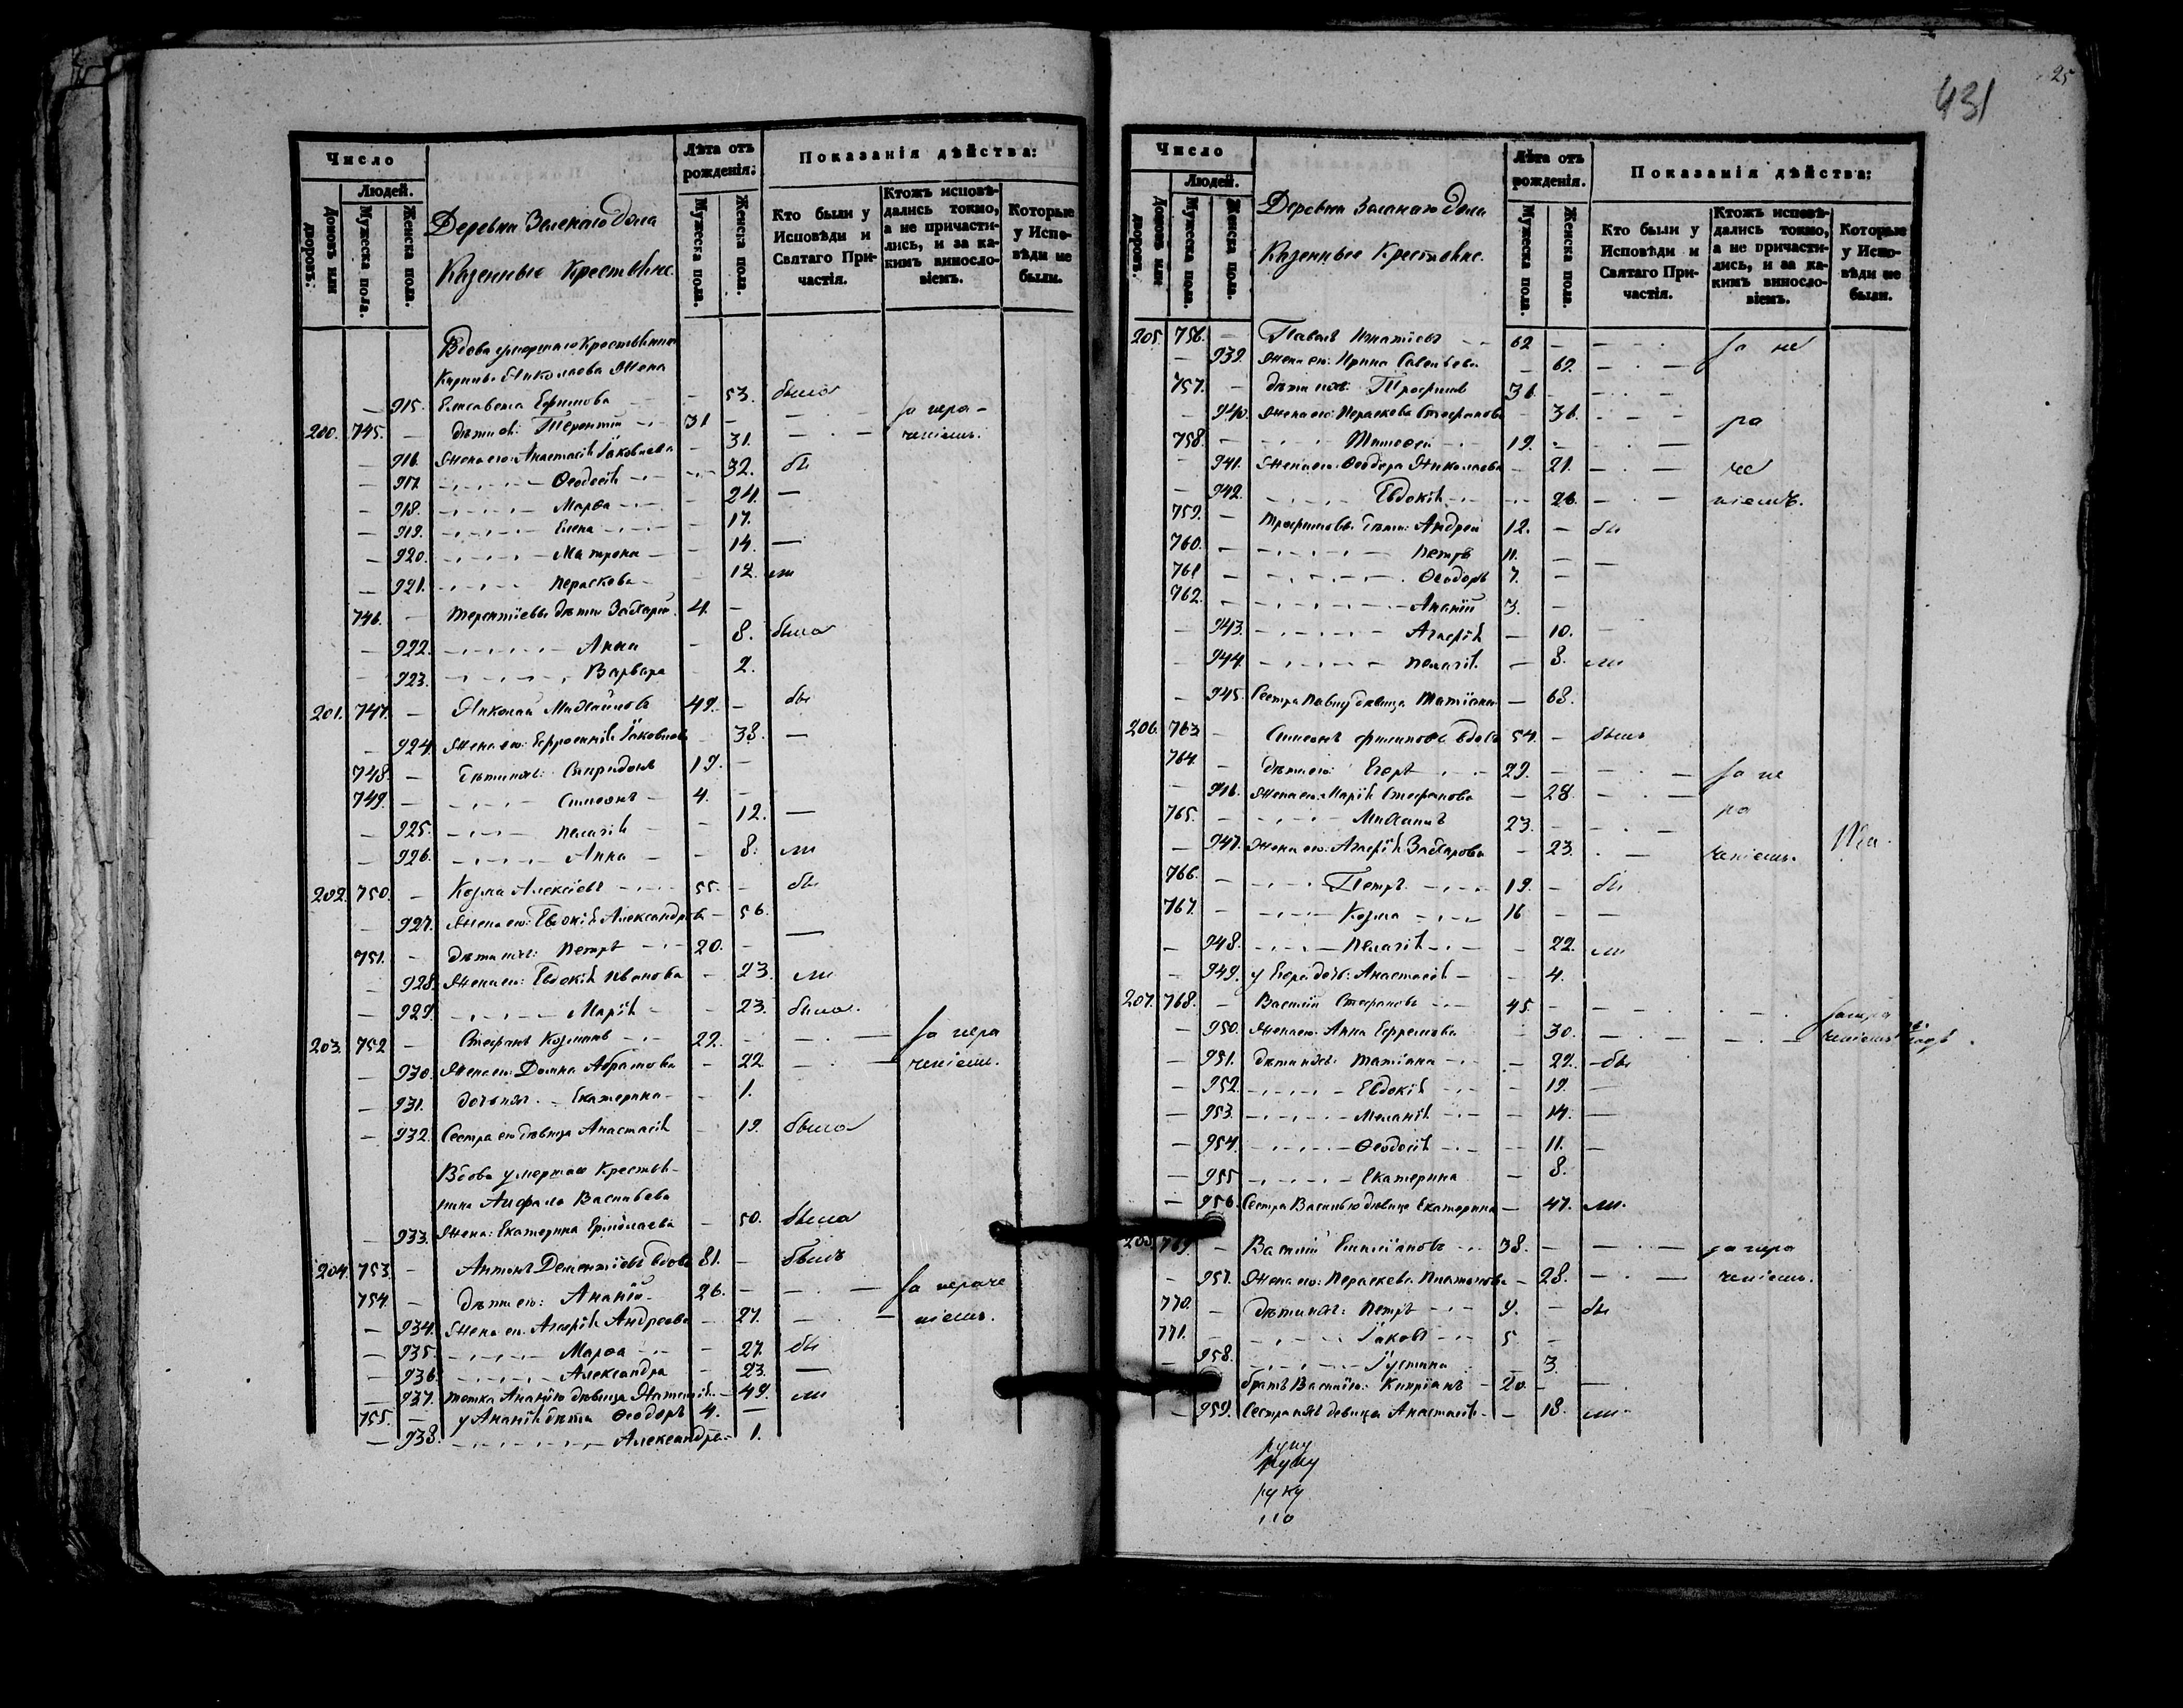 Число
Людей.
Домовъ или дворовъ.
Мужеска пола.
Женска пола.
Деревни Зеленаго дола
Казенные Крестьяне.
Лѣта отъ рожденія.
Мужеска пола.
Женска пола.
Показанія дѣйства:
Кто были у Исповѣди и Святаго Причастія.
Ктожъ исповѣдались токмо, а не причастились, и за какимъ винословіемъ.
Которые у Исповѣди не были.
Вдова умершаго Крестьянина
Николаева Жена
— 915. Елисавета Ефимова — 53. была
200. 745. — дѣти ей: Терентій 31 — за нера-
— 916. Жена его: Анастасія Іаковлева — 31. ченіемъ.
— 917. Ѳеодосія 32. бы
— 918. Марѳа 24. —
— 919. Елена — 17.
— 920. Матрона — 14. —
— 921. Параскева — 12. ли
746. — Терентіевы дѣти Захарій 4. —
— 922. Анна — 8. была
— 923. Варвара — 2.
201. 747. — Николай Михайловъ 49. — бы
— 924. Жена его: Ефросинія Іаковлева 38. —
748. — дѣти ихъ: Спиридонъ 19. —
749. — Симеонъ 4. —
— 925. Пелагія — 12. —
— 926. Анна — 8. ли
202. 750. — Козма Алексіевъ 55. — бы
— 927. Жена его: Евдокія Александрова — 56.
751. — дѣти ихъ: Петръ 20. — —
— 928. Жена его: Евдокія Иванова — 23. ли
— 929. Марія — 23. была.
203. 752 — Стефанъ Козминъ 22. — за нера
— 930. Жена его: Домна Абрамова — 22 — ченіемъ.
— 931. дочь ихъ Екатерина — 1.
— 932. Сестра его дѣвица Анастасія — 19. была
Вдова умершаго Крестья-
нина Васильева
— 933. Жена: Екатерина Ермолаева — 50. была
204. 753. — Антонъ Дементіевъ вдовъ 81. — былъ
754. — дѣти его: Ананія 26. — за нераче
— 934. Жена его: Агафія Андреева — 27. — ніемъ.
— 935. Марѳа — 27. бы
— 936. Александра — 23. —
— 937. тетка Ананію дѣвица — 49. ли
755. — у Ананія дѣти Ѳеодоръ 4. —
— 938. Александра — 1.
25
431
Число
Людей.
Домовъ или дворовъ.
Мужеска пола.
Женска пола.
Деревни Зеленаго дола
Казенные Крестьяне.
Лѣта отъ рожденія.
Мужеска пола.
Женска пола.
Показанія дѣйства:
Кто были у Исповѣди и Святаго Причастія.
Ктожъ исповѣдались токмо, а не причастились, и за какимъ винословіемъ.
Которые у Исповѣди не были.
205. 756. — Павелъ Игнатіевъ 62 — за не
— 939. Жена его: Ирина Савельева — 62.
757. — дѣти ихъ: Трофимъ 36. —
— 940. Жена его: Параскева Стефанова — 36. ра
758. — Тимоѳей 19. —
— 941. Жена его: Ѳеодора Николаева — 21. че
— 942. Евдокія 26. ніемъ.
759. — Трофимовы дѣти: Андрей 12. — бы
760. — Петръ 11. —
761 — Ѳеодоръ 7. —
762. — Ананій 3. —
— 943. Агафія — 10. —
— 944. Пелагія — 8. ли
— 945. Сестра Павлу дѣвица Татіана — 68.
206. 763 — Симеонъ вдовъ 54. — былъ
764. — дѣти его: Егоръ 29. — за не
— 946. Жена его: Марія Стефанова — 28. —
765. — Михаилъ 23. — ра
— 947. Жена его: Агафія Захарова — 23. — ченіемъ.
766. — Петръ 19. — бы
767. — Козма 16 — —
— 948. Пелагія — 22. ли
— 949. у Егора дочь: Анастасія — 4.
207. 768. — Василій Стефановъ 45. —
— 950. Жена его: Анна Ефремова — 30. ченіемъ
— 951. дѣти ихъ: Татіана — 22. — бы
— 952. Евдокія — 19. —
— 953. Меланія — 14. —
— 954. Ѳеодосія — 11. —
— 955 Екатерина — 8.
— 956. Сестра Василью дѣвица Екатерина — 47. ли.
208. 769. — Василій Емиліановъ 38. — за нера
— 957. Жена его: Параскева Платонова — 28. — ченіемъ.
770. — дѣти ихъ: Петръ 9. — бы
771. — Іаковъ 5 —
— 958. Іустина — 3.
братъ Василію: Кипріанъ 20. — —
— 959. Сестра ихъ девица Анастасія — 18. ли.
руку
руку